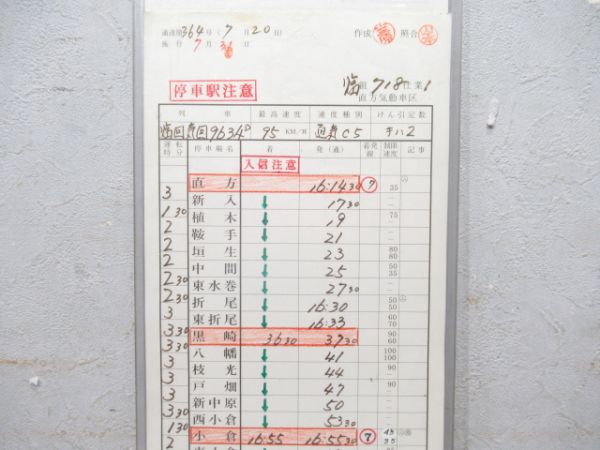 通達第364号(7月20日)
施行 7月31日
作成 照合
停車駅注意
臨 組 718仕業1
直方気動車区
列車 最高速度 速度種別 けん引定数
臨回気回9634D 95 KM/H 通気C5 キハ2
運転時分 停車場名 着 発(通) 着発線 制限速度 記事
入信注意
直方 16:14 30 ⑦ 35
3 新入 ↓ 17 30
1 30 植木 ↓ 19 75
2 鞍手 ↓ 21
2 垣生 ↓ 23 80 80
2 中間 ↓ 25 50 35
2 30 東水巻 ↓ 27 30
2 30 折尾 ↓ 16:30 50
3 東折尾 ↓ 16:33 60 70
3 30 黒崎 36 30 37 30 90 60
3 30 八幡 ↓ 41 100 100
3 枝光 ↓ 44 90
3 戸畑 ↓ 47
3 新中原 ↓ 50 90
3 30 西小倉 ↓ 53 30
1 30 小倉 16:55 16:55 30 ⑦ 45 35
2